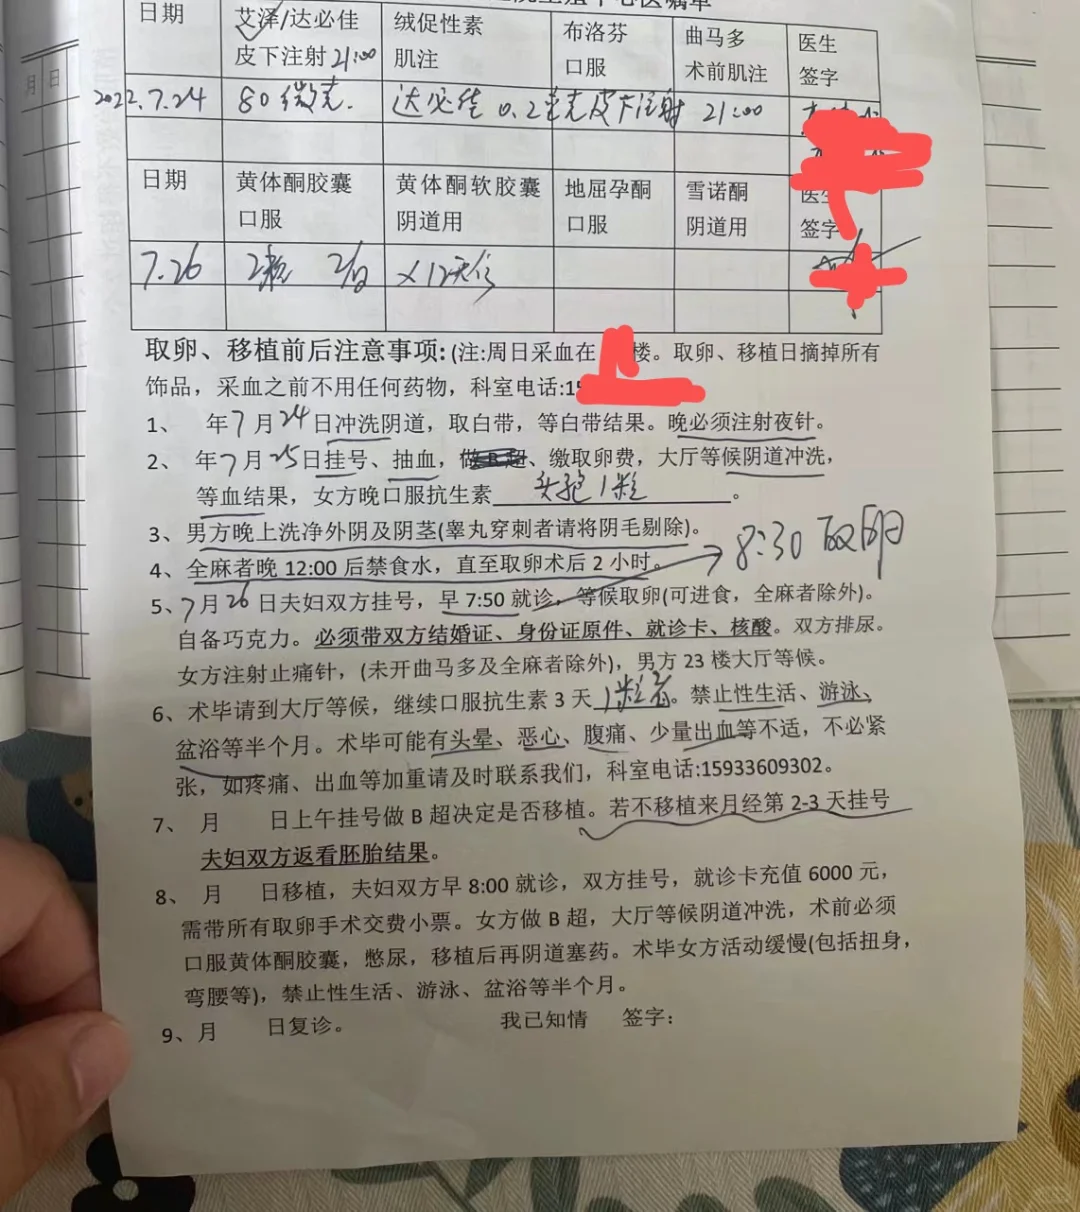 殖中心医嘱单
日期 艾泽/达必佳 皮下注射 21:00 绒促性素 肌注 布洛芬 口服 曲马多 术前肌注 医生 签字
月 日
2022.7.24 80微克. 达必佳 0.2毫克皮下注射 21:00
日期 黄体酮胶囊 口服 黄体酮软胶囊 阴道用 地屈孕酮 口服 雪诺酮 阴道用 医生 签字
7.26 2颗 2/日 ×12天
取卵、移植前后注意事项: (注:周日采血在 楼。取卵、移植日摘掉所有
饰品，采血之前不用任何药物，科室电话:15
1、 年7月24日冲洗阴道，取白带，等白带结果。晚必须注射夜针。
2、 年7月25日挂号、抽血，做B超、缴取卵费，大厅等候阴道冲洗，
等血结果，女方晚口服抗生素 头孢1粒 。
3、男方晚上洗净外阴及阴茎(睾丸穿刺者请将阴毛剔除)。
4、全麻者晚 12:00 后禁食水，直至取卵术后 2 小时。
8:30 取卵
5、7月26日夫妇双方挂号，早 7:50 就诊，等候取卵(可进食，全麻者除外)。
自备巧克力。必须带双方结婚证、身份证原件、就诊卡、核酸。双方排尿。
女方注射止痛针，(未开曲马多及全麻者除外)，男方 23 楼大厅等候。
6、术毕请到大厅等候，继续口服抗生素 3 天 1粒 。禁止性生活、游泳、
盆浴等半个月。术毕可能有头晕、恶心、腹痛、少量出血等不适，不必紧
张，如疼痛、出血等加重请及时联系我们，科室电话:15933609302。
7、 月 日上午挂号做 B 超决定是否移植。若不移植来月经第 2-3 天挂号
夫妇双方返看胚胎结果。
8、 月 日移植，夫妇双方早 8:00 就诊，双方挂号，就诊卡充值 6000 元，
需带所有取卵手术交费小票。女方做 B 超，大厅等候阴道冲洗，术前必须
口服黄体酮胶囊，憋尿，移植后再阴道塞药。术毕女方活动缓慢(包括扭身，
弯腰等)，禁止性生活、游泳、盆浴等半个月。
9、 月 日复诊。 我已知情 签字：